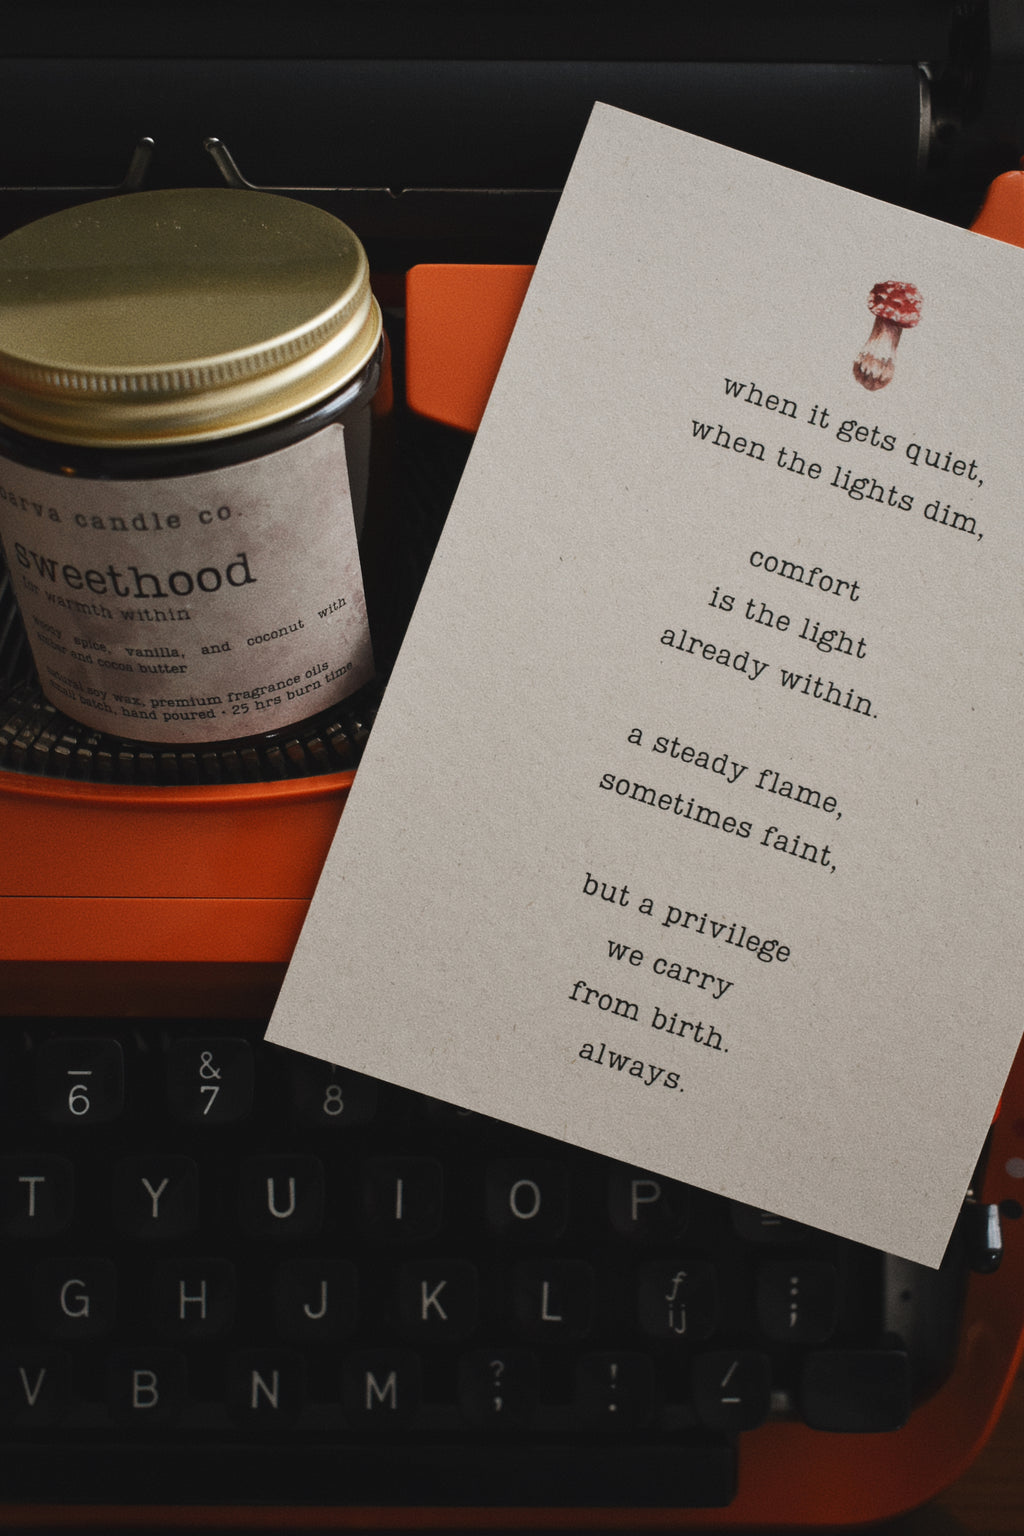 candle co.
sweethood
for warmth within
spice, vanilla, and coconut with
amber and cocoa butter
natural soy wax, premium fragrance oils
small batch, hand poured · 25 hrs burn time
when it gets quiet,
when the lights dim,
comfort
is the light
already within.
a steady flame,
sometimes faint,
but a privilege
we carry
from birth.
always.
_ &
6 7 8
T Y U I O P =
G H J K L f ij : ;
V B N M ? , ! . / -